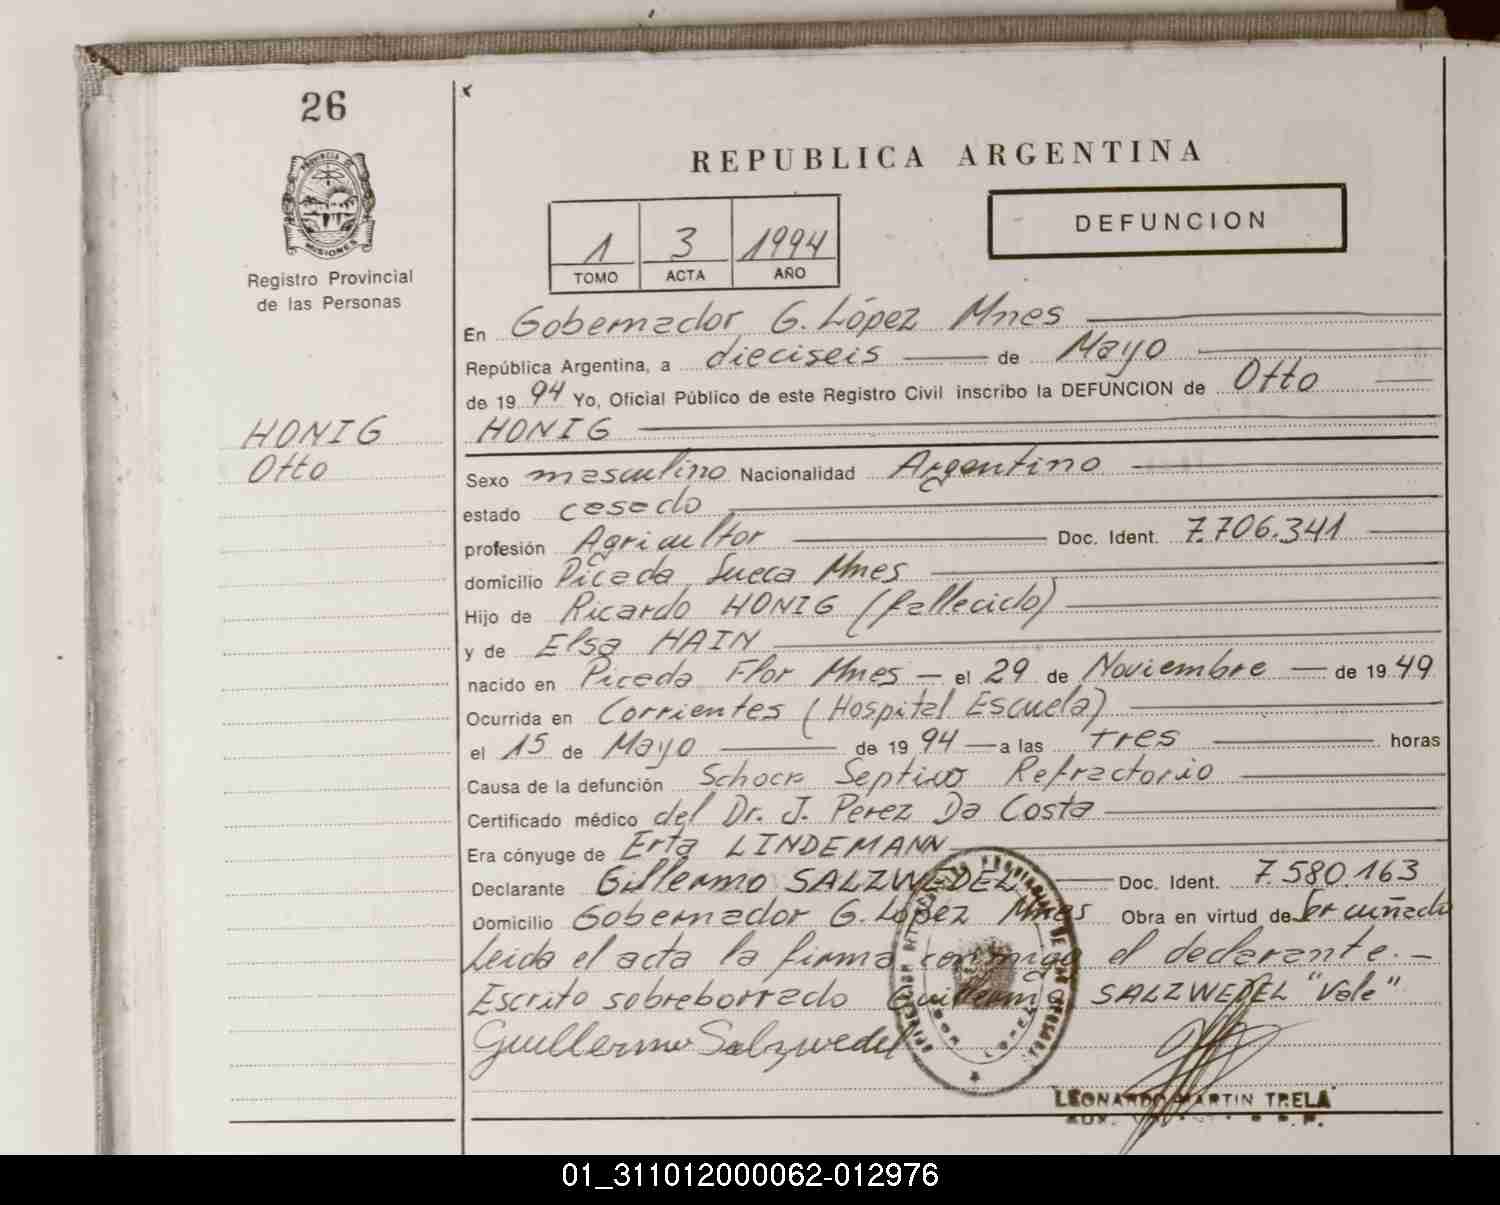 26
PROVINCIA DE
MISIONES
Registro Provincial
de las Personas
HONIG
Otto
REPUBLICA ARGENTINA
1 3 1994
TOMO ACTA AÑO
DEFUNCION
En Gobernador G. López Mnes
República Argentina, a dieciseis de Mayo
de 19 94 Yo, Oficial Público de este Registro Civil inscribo la DEFUNCION de Otto
HONIG
Sexo masculino Nacionalidad Argentino
estado casado
profesión Agricultor Doc. Ident. 7.706.341
domicilio Picada Sueca Mnes
Hijo de Ricardo HONIG (fallecido)
y de Elsa HAIN
nacido en Picada Flor Mnes — el 29 de Noviembre — de 19 49
Ocurrida en Corrientes (Hospital Escuela)
el 15 de Mayo de 19 94 — a las tres horas
Causa de la defunción Schock Septivo Refractorio
Certificado médico del Dr. J. Perez Da Costa
Era cónyuge de Erta LINDEMANN
Declarante Gillermo SALZWEDEL Doc. Ident. 7.580.163
Domicilio Gobernador G. López Mnes Obra en virtud de Ser cuñado
Leida el acta la firma conmigo el declarante.—
Escrito sobreborrado Guillermo SALZWEDEL "Vale"
Guillermo Salzwedel
LEONARDO MARTIN TRELA
01_311012000062-012976